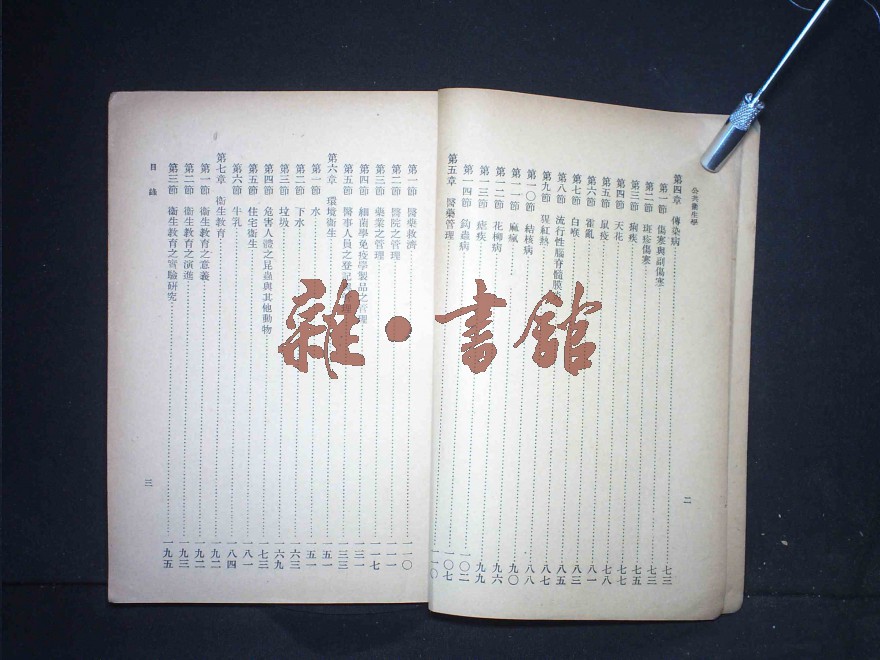 公共衛生學
二
第四章 傳染病……七三
第一節 傷寒與副傷寒……七三
第二節 斑疹傷寒……七五
第三節 痢疾……七七
第四節 天花……七八
第五節 鼠疫……八一
第六節 霍亂……八三
第七節 白喉……八五
第八節 流行性腦脊髓膜……八七
第九節 猩紅熱……八八
第一〇節 結核病……九〇
第一一節 麻瘋……九六
第一二節 花柳病……九九
第一三節 瘧疾……一〇二
第一四節 鈎蟲病……一〇七
第五章 醫藥管理……一一〇
第一節 醫藥救濟……一一〇
第二節 醫院之管理
第三節 藥業之管理……一一七
第四節 細菌學免疫學製品之管理……一三一
第五節 醫事人員之登記……一三三
第六章 環境衛生……一五一
第一節 水……一五一
第二節 下水……一六三
第三節 垃圾……一六九
第四節 危害人體之昆蟲與其他動物……一七三
第五節 住宅衛生……一八一
第六節 牛乳……一八四
第七章 衞生教育……一九二
第一節 衞生教育之意義……一九二
第二節 衞生教育之演進……一九三
第三節 衞生教育之實驗研究……一九五
目錄
三
雜·書館